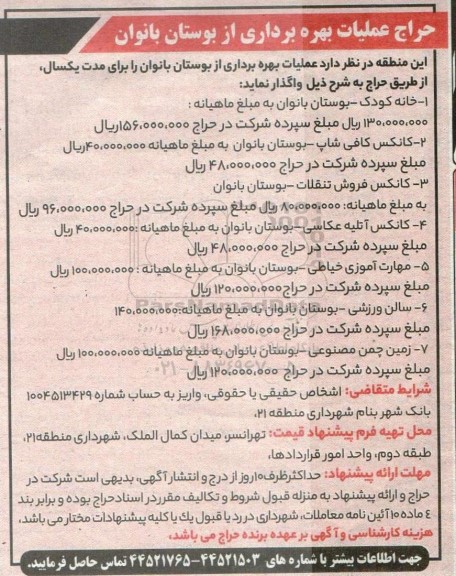 حراج عملیات بهره برداری از بوستان بانوان
این منطقه در نظر دارد عملیات بهره برداری از بوستان بانوان را برای مدت یکسال،
از طریق حراج به شرح ذیل واگذار نماید:
۱-خانه کودک -بوستان بانوان به مبلغ ماهیانه :
۱۳۰،۰۰۰،۰۰۰ ریال مبلغ سپرده شرکت در حراج ۱۵۶،۰۰۰،۰۰۰ریال
۲-کانکس کافی شاپ -بوستان بانوان به مبلغ ماهیانه ۴۰،۰۰۰،۰۰۰ریال
مبلغ سپرده شرکت در حراج ۴۸،۰۰۰،۰۰۰ ریال
۳- کانکس فروش تنقلات -بوستان بانوان
به مبلغ ماهیانه: ۸۰،۰۰۰،۰۰۰ ریال مبلغ سپرده شرکت در حراج ۹۶،۰۰۰،۰۰۰ ریال
۴- کانکس آتلیه عکاسی-بوستان بانوان به مبلغ ماهیانه :۴۰،۰۰۰،۰۰۰ ریال
مبلغ سپرده شرکت در حراج ۴۸،۰۰۰،۰۰۰ ریال
۵- مهارت آموزی خیاطی -بوستان بانوان به مبلغ ماهیانه : ۱۰۰،۰۰۰،۰۰۰ ریال
مبلغ سپرده شرکت در حراج۱۲۰،۰۰۰،۰۰۰ ریال
۶- سالن ورزشی -بوستان بانوان به مبلغ ماهیانه:۱۴۰،۰۰۰،۰۰۰
مبلغ سپرده شرکت در حراج ۱۶۸،۰۰۰،۰۰۰ ریال
۷- زمین چمن مصنوعی-بوستان بانوان به مبلغ ماهیانه ۱۰۰،۰۰۰،۰۰۰ ریال
مبلغ سپرده شرکت در حراج ۱۲۰،۰۰۰،۰۰۰ ریال
شرایط متقاضی: اشخاص حقیقی یا حقوقی، واریز به حساب شماره ۱۰۰۴۵۱۳۴۲۹
بانک شهر بنام شهرداری منطقه ۲۱،
محل تهیه فرم پیشنهاد قیمت: تهرانسر، میدان کمال الملک، شهرداری منطقه۲۱،
طبقه دوم، واحد امور قراردادها،
مهلت ارائه پیشنهاد: حداکثرظرف۱۰روز از درج و انتشار آگهی، بدیهی است شرکت در
حراج و ارائه پیشنهاد به منزله قبول شروط و تکالیف مقرر در اسناد حراج بوده و برابر بند
٤ ماده۱۰آئین نامه معاملات، شهرداری در رد یا قبول یك یا کلیه پیشنهادات مختار می باشد،
هزینه کارشناسی و آگهی بر عهده برنده حراج می باشد،
جهت اطلاعات بیشتر با شماره های ۴۴۵۲۱۵۰۳-۴۴۵۲۱۷۶۵ تماس حاصل فرمایید.